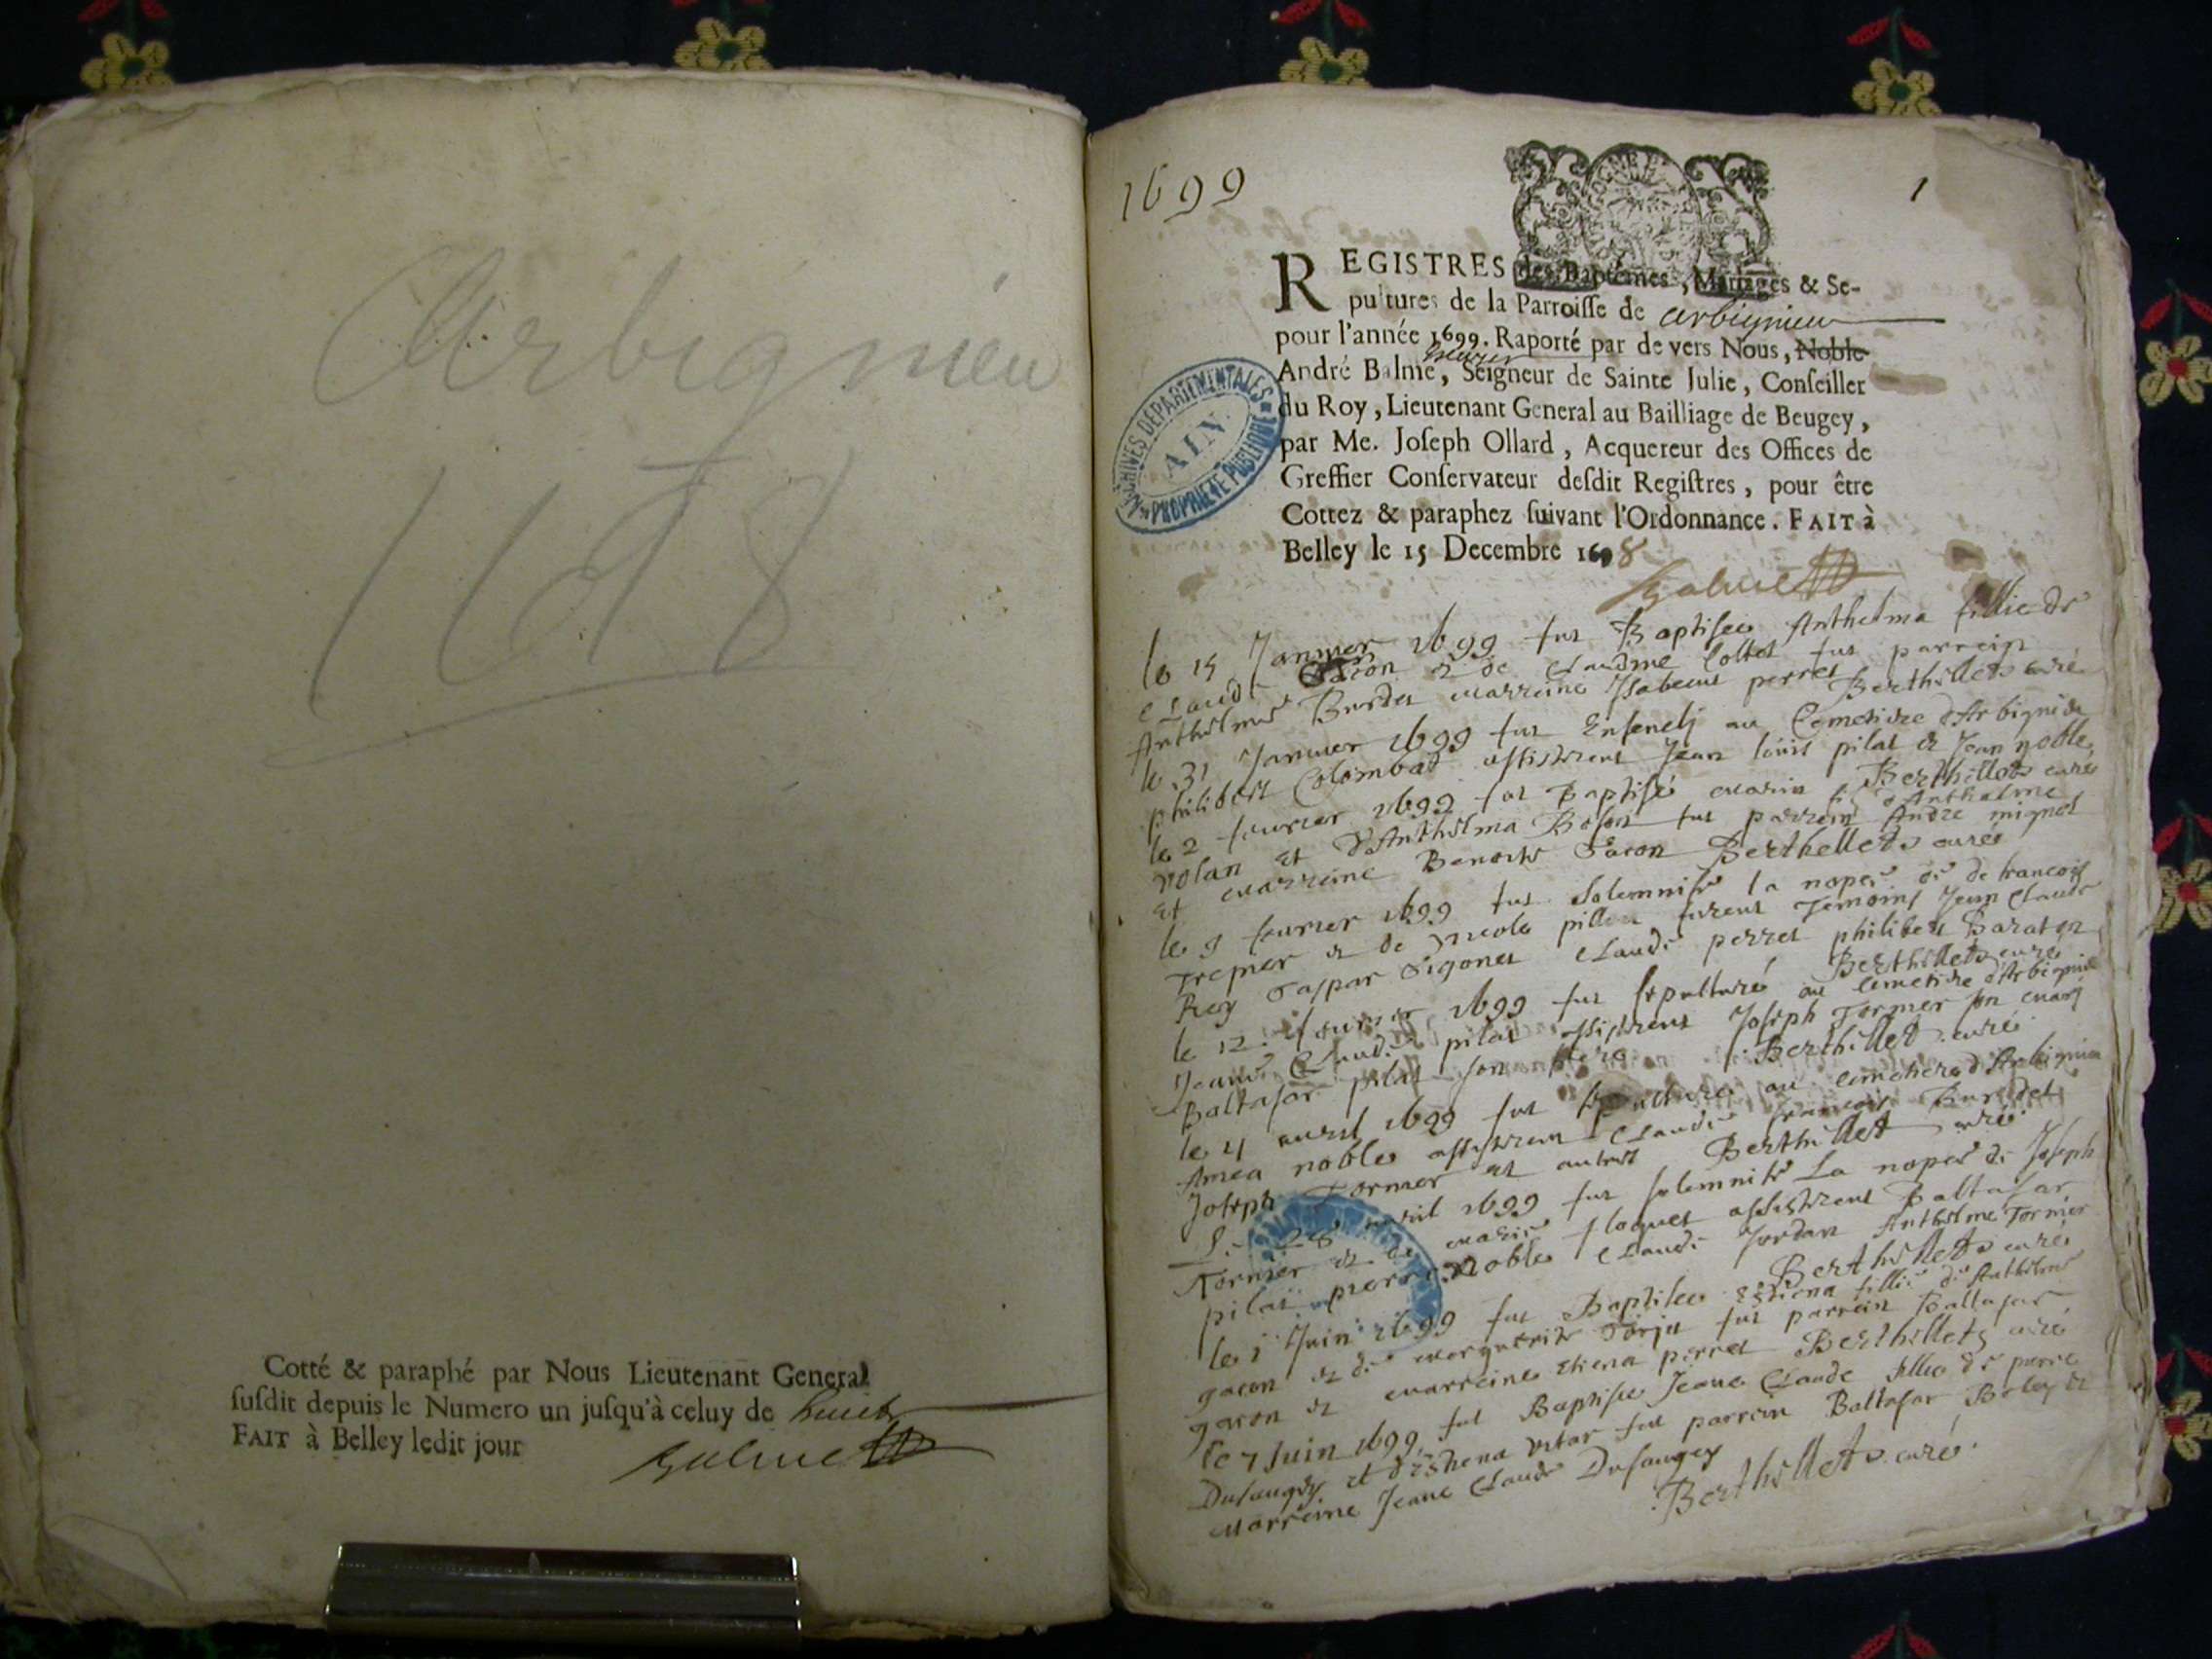 Arbignieu
Cotté & paraphé par Nous Lieutenant General
ſuſdit depuis le Numero un juſqu'à celuy de huict
FAIT à Belley ledit jour
Balme
1699
1
REGISTRES des Baptêmes, Mariages & Se-
pultures de la Parroiſſe de Arbignieu
pour l'année 1699. Raporté par de vers Nous, Noble
André Balme, Seigneur de Sainte Julie, Conſeiller
du Roy, Lieutenant General au Bailliage de Beugey,
par Me. Joſeph Ollard, Acquereur des Offices de
Greffier Conſervateur deſdit Regiſtres, pour être
Cottez & paraphez ſuivant l'Ordonnance. FAIT à
Belley le 15 Decembre 1698
ARCHIVES DEPARTEMENTALES
AIN
PROPRIETE PUBLIQUE
Balme
le 15 Janvier 1699 fut Baptisee Anthelma fillie de
Claude et de Claudine Collet fut parrein
Anthelme Burdet marreine Isabeau perret Berthellet curé
le 31 Janvier 1699 fut Enseveli au Cemetiere d'Arbignieu
philibert Colombat assistirent Jean louis pilat et Jean noble
Berthellet curé
le 2 fevrier 1699 fut Baptisé marin fis d'Anthelme
volan et d'Anthelma fut parrein André mignot
et marreine Benoite Berthellet curé
le 9 fevrier 1699 fut solemnisé la nopce de francois
et de nicole furent temoins Jean Claude
Rey Gaspar Claude perret philibert
Berthellet curé
le 12 fevrier 1699 fut sepulturé au cimetiere d'Arbignieu
Jeanne Claude pilat assistirent Joseph Tornier son mary
Baltasar pilat son pere Berthellet curé
le 4 avril 1699 fut au cimetiere d'Arbignieu
Amea noble assistirent Claude francois Burdet
Joseph Tornier et autres Berthellet curé
avril 1699 fut solemnisé La nopce de Joseph
Tornier et de marie assistirent Baltasar
pilat pierre noble Claude Jordan Anthelme Tornier
Berthellet curé
le 1 Juin 1699 fut Baptisee Estiena fillie de Anthelme
gacon et de marguerite fut parrein Baltasar
gacon et marreine Etiena perret Berthellet curé
le 7 Juin 1699 fut Baptisee Jeane Claude fillie de pierre
Dusaugey et fut parrein Baltasar et
marreine Jeane Claude Dusaugey
Berthellet curé